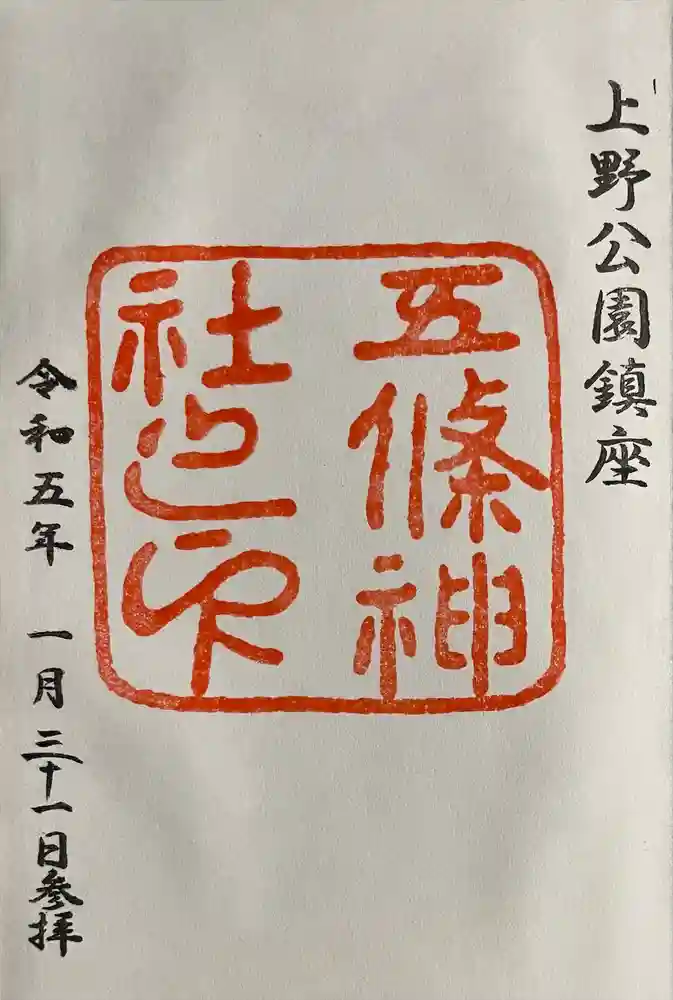 上野公園鎮座
五條神
社之印
令和五年 一月 三十一日参拝